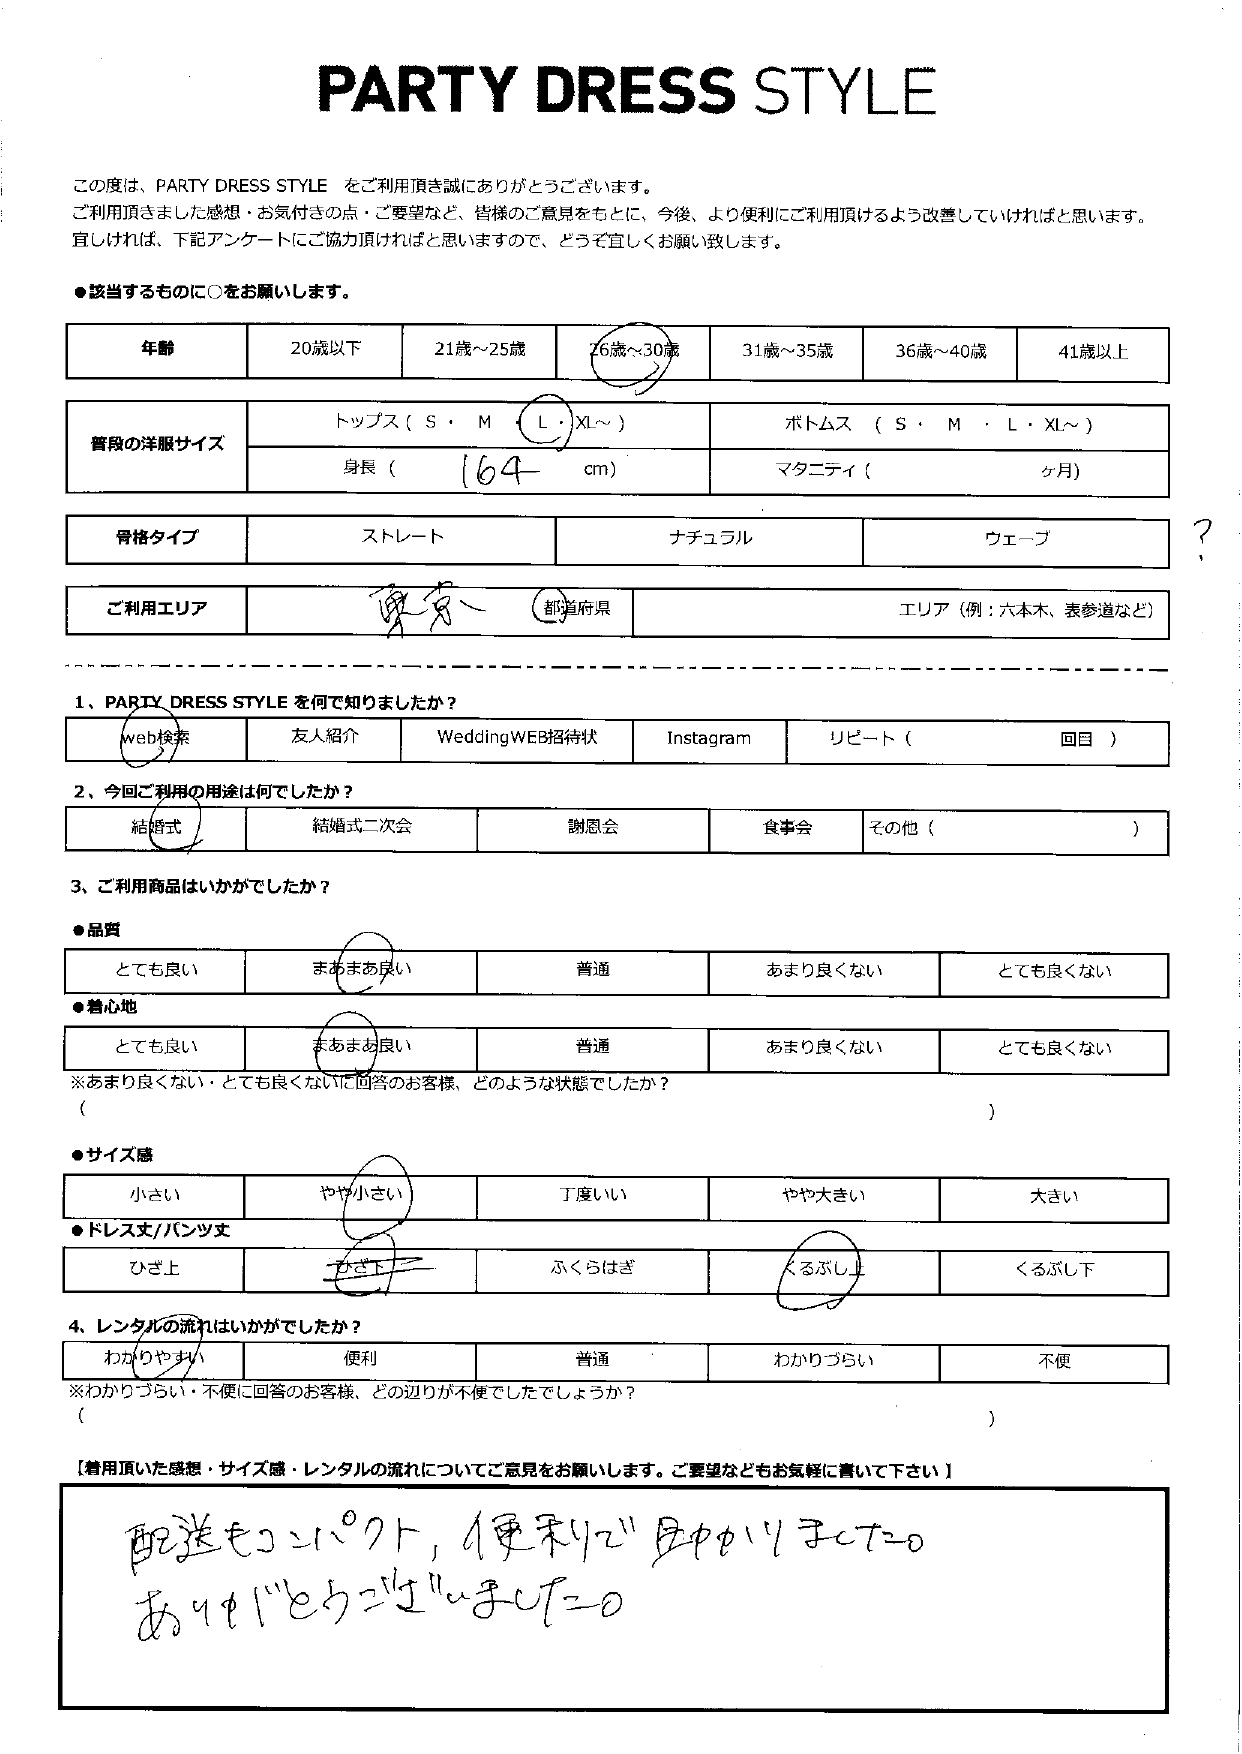 PARTY DRESS STYLE
この度は、PARTY DRESS STYLE をご利用頂き誠にありがとうございます。
ご利用頂きました感想・お気付きの点・ご要望など、皆様のご意見をもとに、今後、より便利にご利用頂けるよう改善していければと思います。
宜しければ、下記アンケートにご協力頂ければと思いますので、どうぞ宜しくお願い致します。
●該当するものに○をお願いします。
年齢 20歳以下 21歳～25歳 26歳～30歳 31歳～35歳 36歳～40歳 41歳以上
普段の洋服サイズ トップス ( S ・ M ・ L ・ XL～ ) ボトムス ( S ・ M ・ L ・ XL～ )
身長 ( 164 cm) マタニティ ( ヶ月)
骨格タイプ ストレート ナチュラル ウェーブ ?
ご利用エリア 東京 都道府県 エリア（例：六本木、表参道など）
1、PARTY DRESS STYLE を何で知りましたか？
web検索 友人紹介 WeddingWEB招待状 Instagram リピート ( 回目 )
2、今回ご利用の用途は何でしたか？
結婚式 結婚式二次会 謝恩会 食事会 その他 ( )
3、ご利用商品はいかがでしたか？
●品質
とても良い まあまあ良い 普通 あまり良くない とても良くない
●着心地
とても良い まあまあ良い 普通 あまり良くない とても良くない
※あまり良くない・とても良くないに回答のお客様、どのような状態でしたか？
( )
●サイズ感
小さい やや小さい 丁度いい やや大きい 大きい
●ドレス丈/パンツ丈
ひざ上 ひざ下 ふくらはぎ くるぶし上 くるぶし下
4、レンタルの流れはいかがでしたか？
わかりやすい 便利 普通 わかりづらい 不便
※わかりづらい・不便に回答のお客様、どの辺りが不便でしたでしょうか？
( )
【着用頂いた感想・サイズ感・レンタルの流れについてご意見をお願いします。ご要望などもお気軽に書いて下さい】
配送もコンパクト, 便利で助かりました。
ありがとうございました。